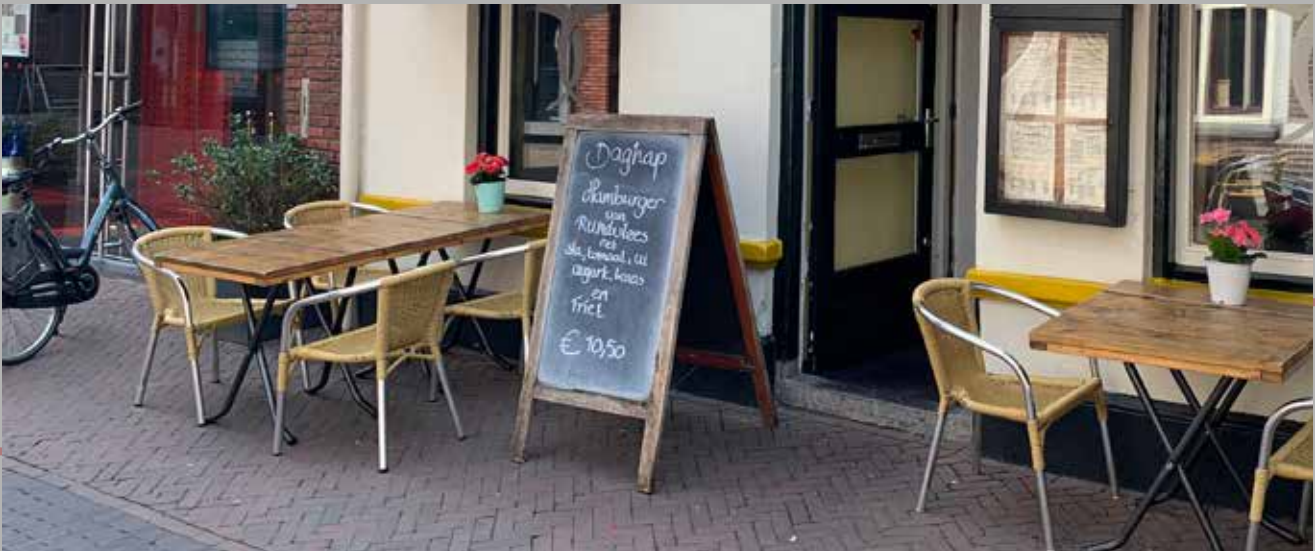 Daghap
Hamburger
van
Rundvlees
met
sla, tomaat, ui
augurk, kaas
en
Friet
€ 10,50